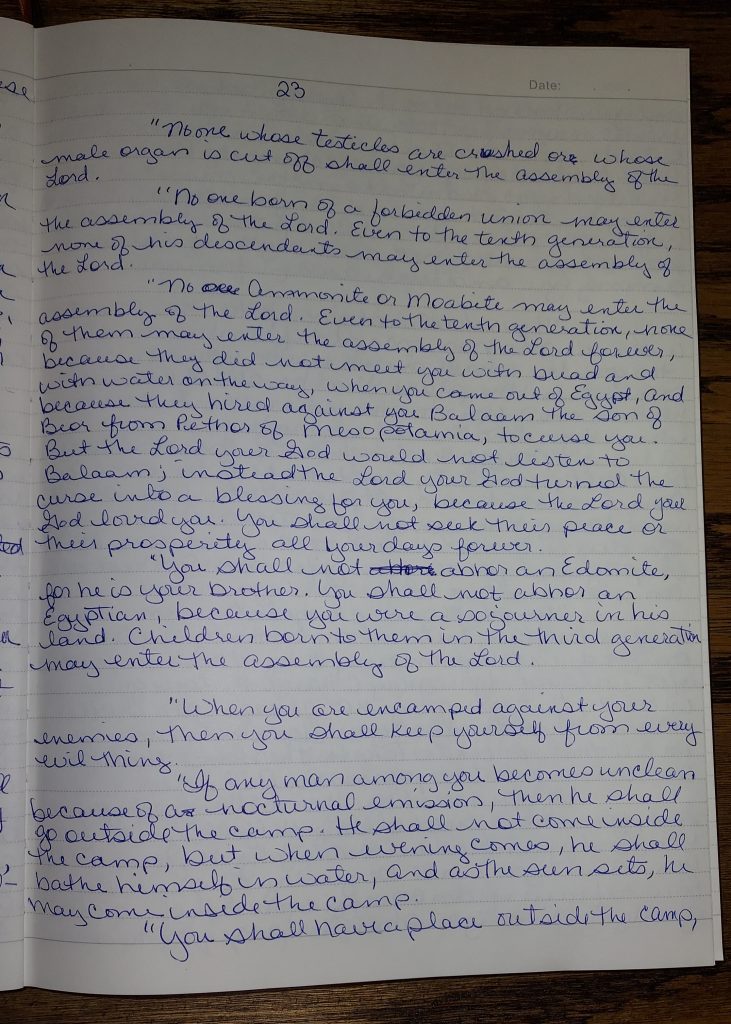 23
Date:
"No one whose testicles are crushed or whose
male organ is cut off shall enter the assembly of the
Lord.
"No one born of a forbidden union may enter
the assembly of the Lord. Even to the tenth generation,
none of his descendants may enter the assembly of
the Lord.
"No Ammonite or Moabite may enter the
assembly of the Lord. Even to the tenth generation, none
of them may enter the assembly of the Lord forever,
because they did not meet you with bread and
with water on the way, when you came out of Egypt, and
because they hired against you Balaam the son of
Beor from Pethor of Mesopotamia, to curse you.
But the Lord your God would not listen to
Balaam; instead the Lord your God turned the
curse into a blessing for you, because the Lord your
God loved you. You shall not seek their peace or
their prosperity all your days forever.
"You shall not abhor an Edomite,
for he is your brother. You shall not abhor an
Egyptian, because you were a sojourner in his
land. Children born to them in the third generation
may enter the assembly of the Lord.
"When you are encamped against your
enemies, then you shall keep yourself from every
evil thing.
"If any man among you becomes unclean
because of a nocturnal emission, then he shall
go outside the camp. He shall not come inside
the camp, but when evening comes, he shall
bathe himself in water, and as the sun sets, he
may come inside the camp.
"You shall have a place outside the camp,